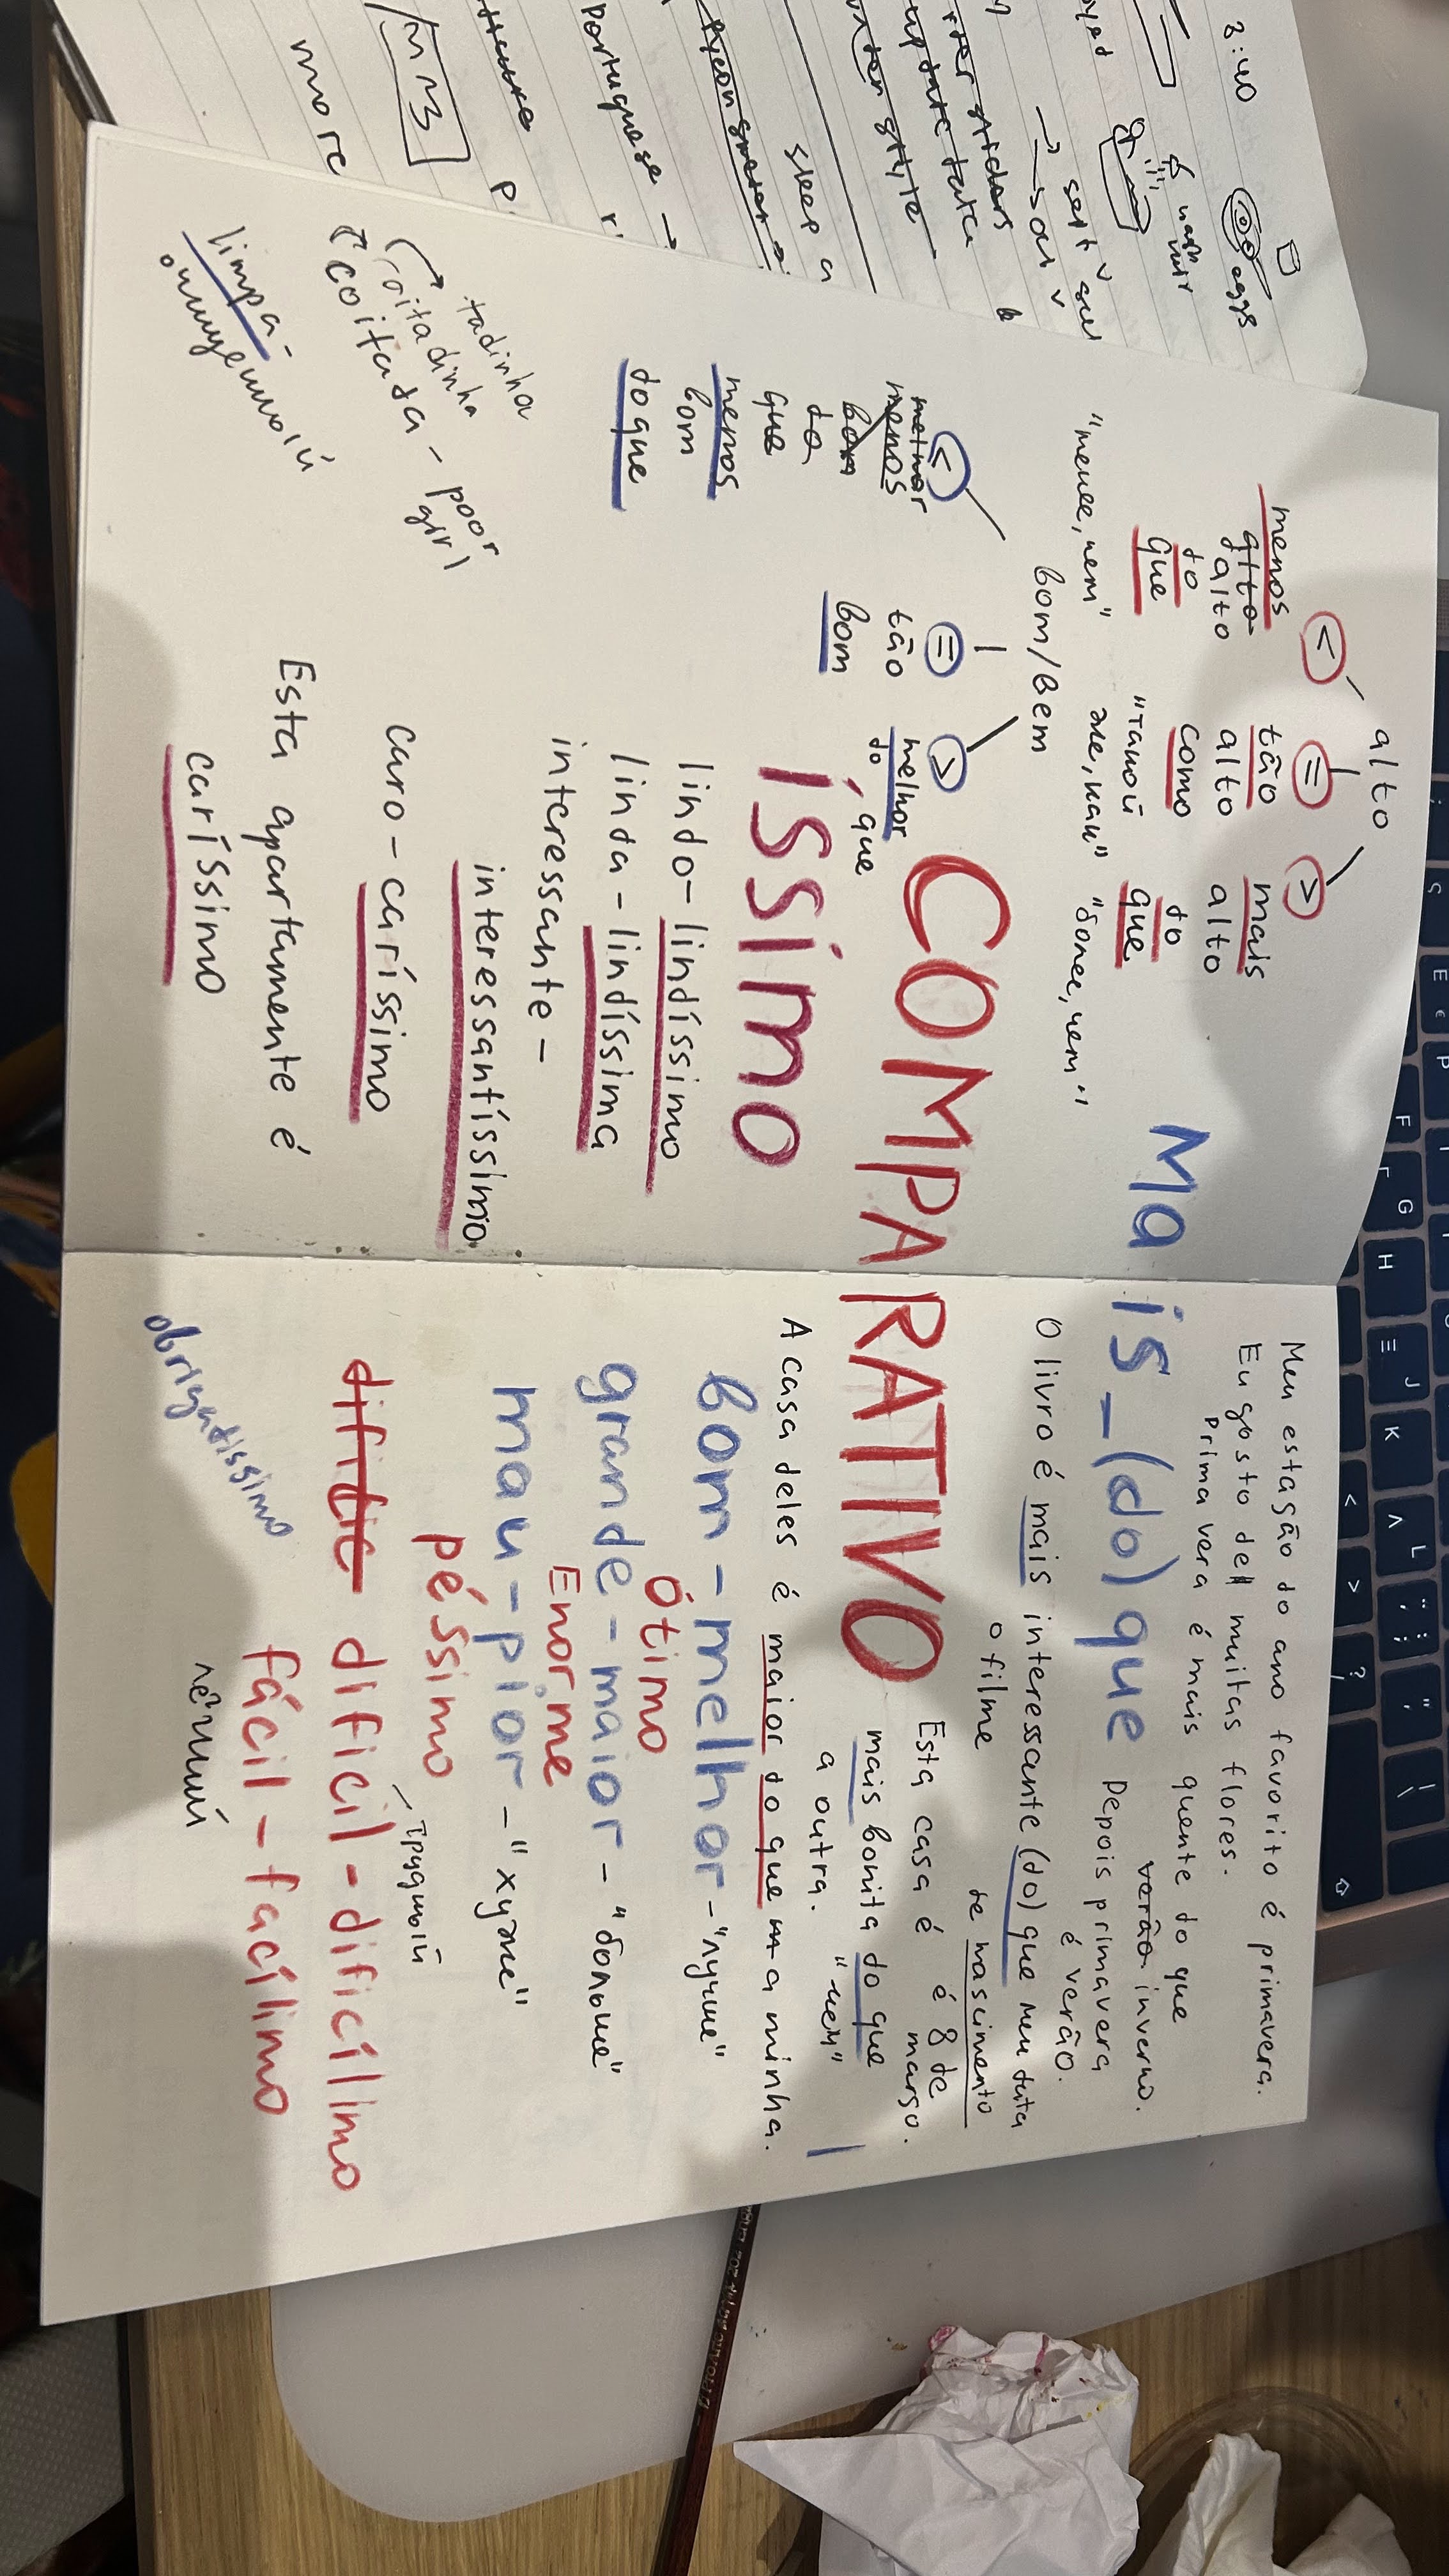 8:40
eggs
sleep a
Portuguese →
more
alto
< = >
menos
alto
alto
do
que
"менее, чем"
tão
alto
como
"такой
же, как"
mais
alto
do
que
"более, чем"
bom/bem
< = >
melhor
menos
bom
do
que
menos
bom
do que
tão
bom
melhor
do que
Mais_(do) que
COMPARATIVO
íssimo
lindo - lindíssimo
linda - lindíssima
interessante -
interessantíssimo
caro - caríssimo
Esta apartamente é
caríssimo
tadinha
coitadinha
coitada - poor
girl
limpa -
Meu estação do ano favorito é primavera.
Eu gosto de muitas flores.
Primavera é mais quente do que
verão inverno.
Depois primavera
é verão.
O livro é mais interessante (do) que meu data
o filme
de nascimento
é 8 de
março.
Esta casa é
mais bonita do que
a outra.
"чем"
A casa deles é maior do que a minha.
bom - melhor - "лучше"
Ótimo
grande - maior - "больше"
Enorme
mau - pior - "хуже"
péssimo
трудный
difícil - dificílimo
fácil - facílimo
лёгкий
obrigatissimo
S
E
P
F
G
H
J
K
L